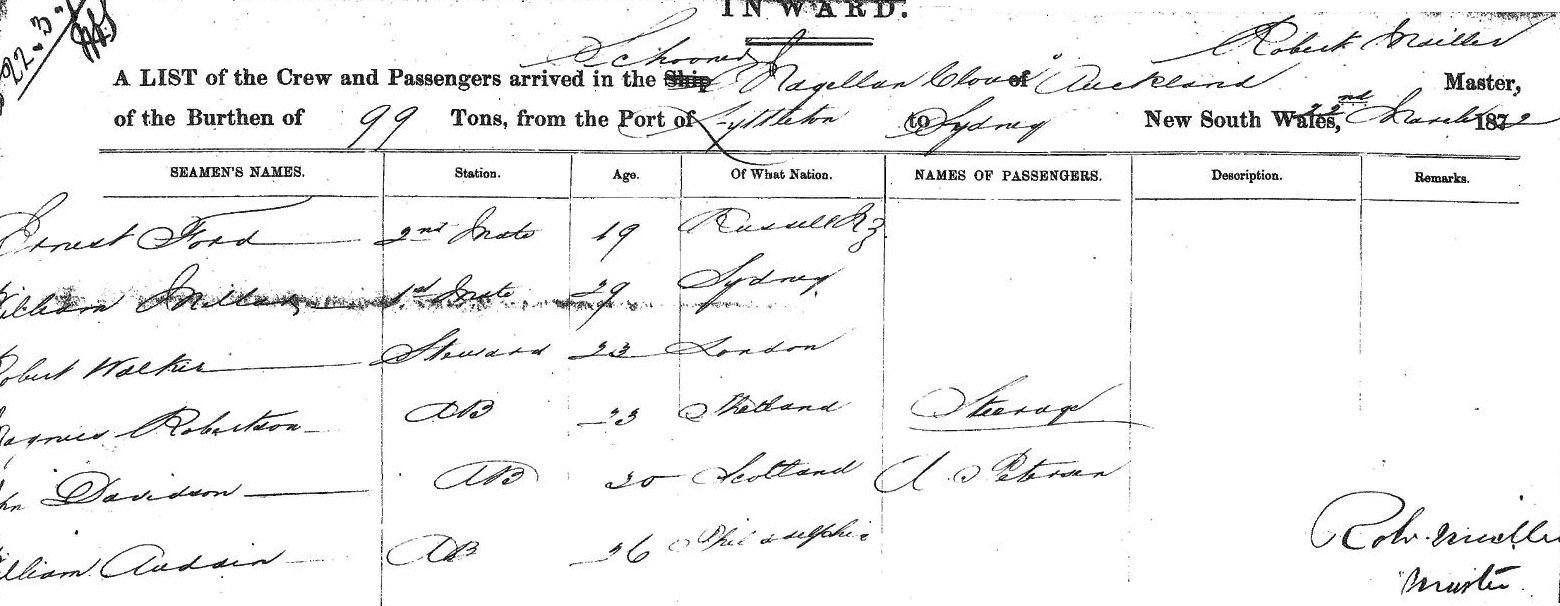 22.3.
INWARD.
Schooner Robert Mailler
A LIST of the Crew and Passengers arrived in the Ship Magellan Clou of Auckland Master,
of the Burthen of 99 Tons, from the Port of Lyttleton to Sydney New South Wales, 22nd March 1872
SEAMEN'S NAMES. Station. Age. Of What Nation. NAMES OF PASSENGERS. Description. Remarks.
Ernest Ford 2nd Mate 19 Russell NZ
William Millar 1st Mate 29 Sydney
Robert Walker Steward 23 London
Magnus Robertson AB 23 Shetland Steerage
John Davidson AB 20 Scotland A Petersen
William AB 26 Philadelphia
Robt. Mailler
Master